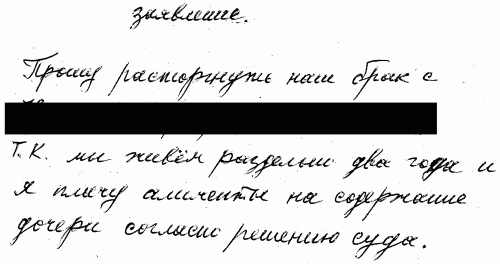 заявление.
Прошу расторгнуть наш брак с
т.к. мы живём раздельно два года и
я плачу алименты на содержание
дочери согласно решению суда.